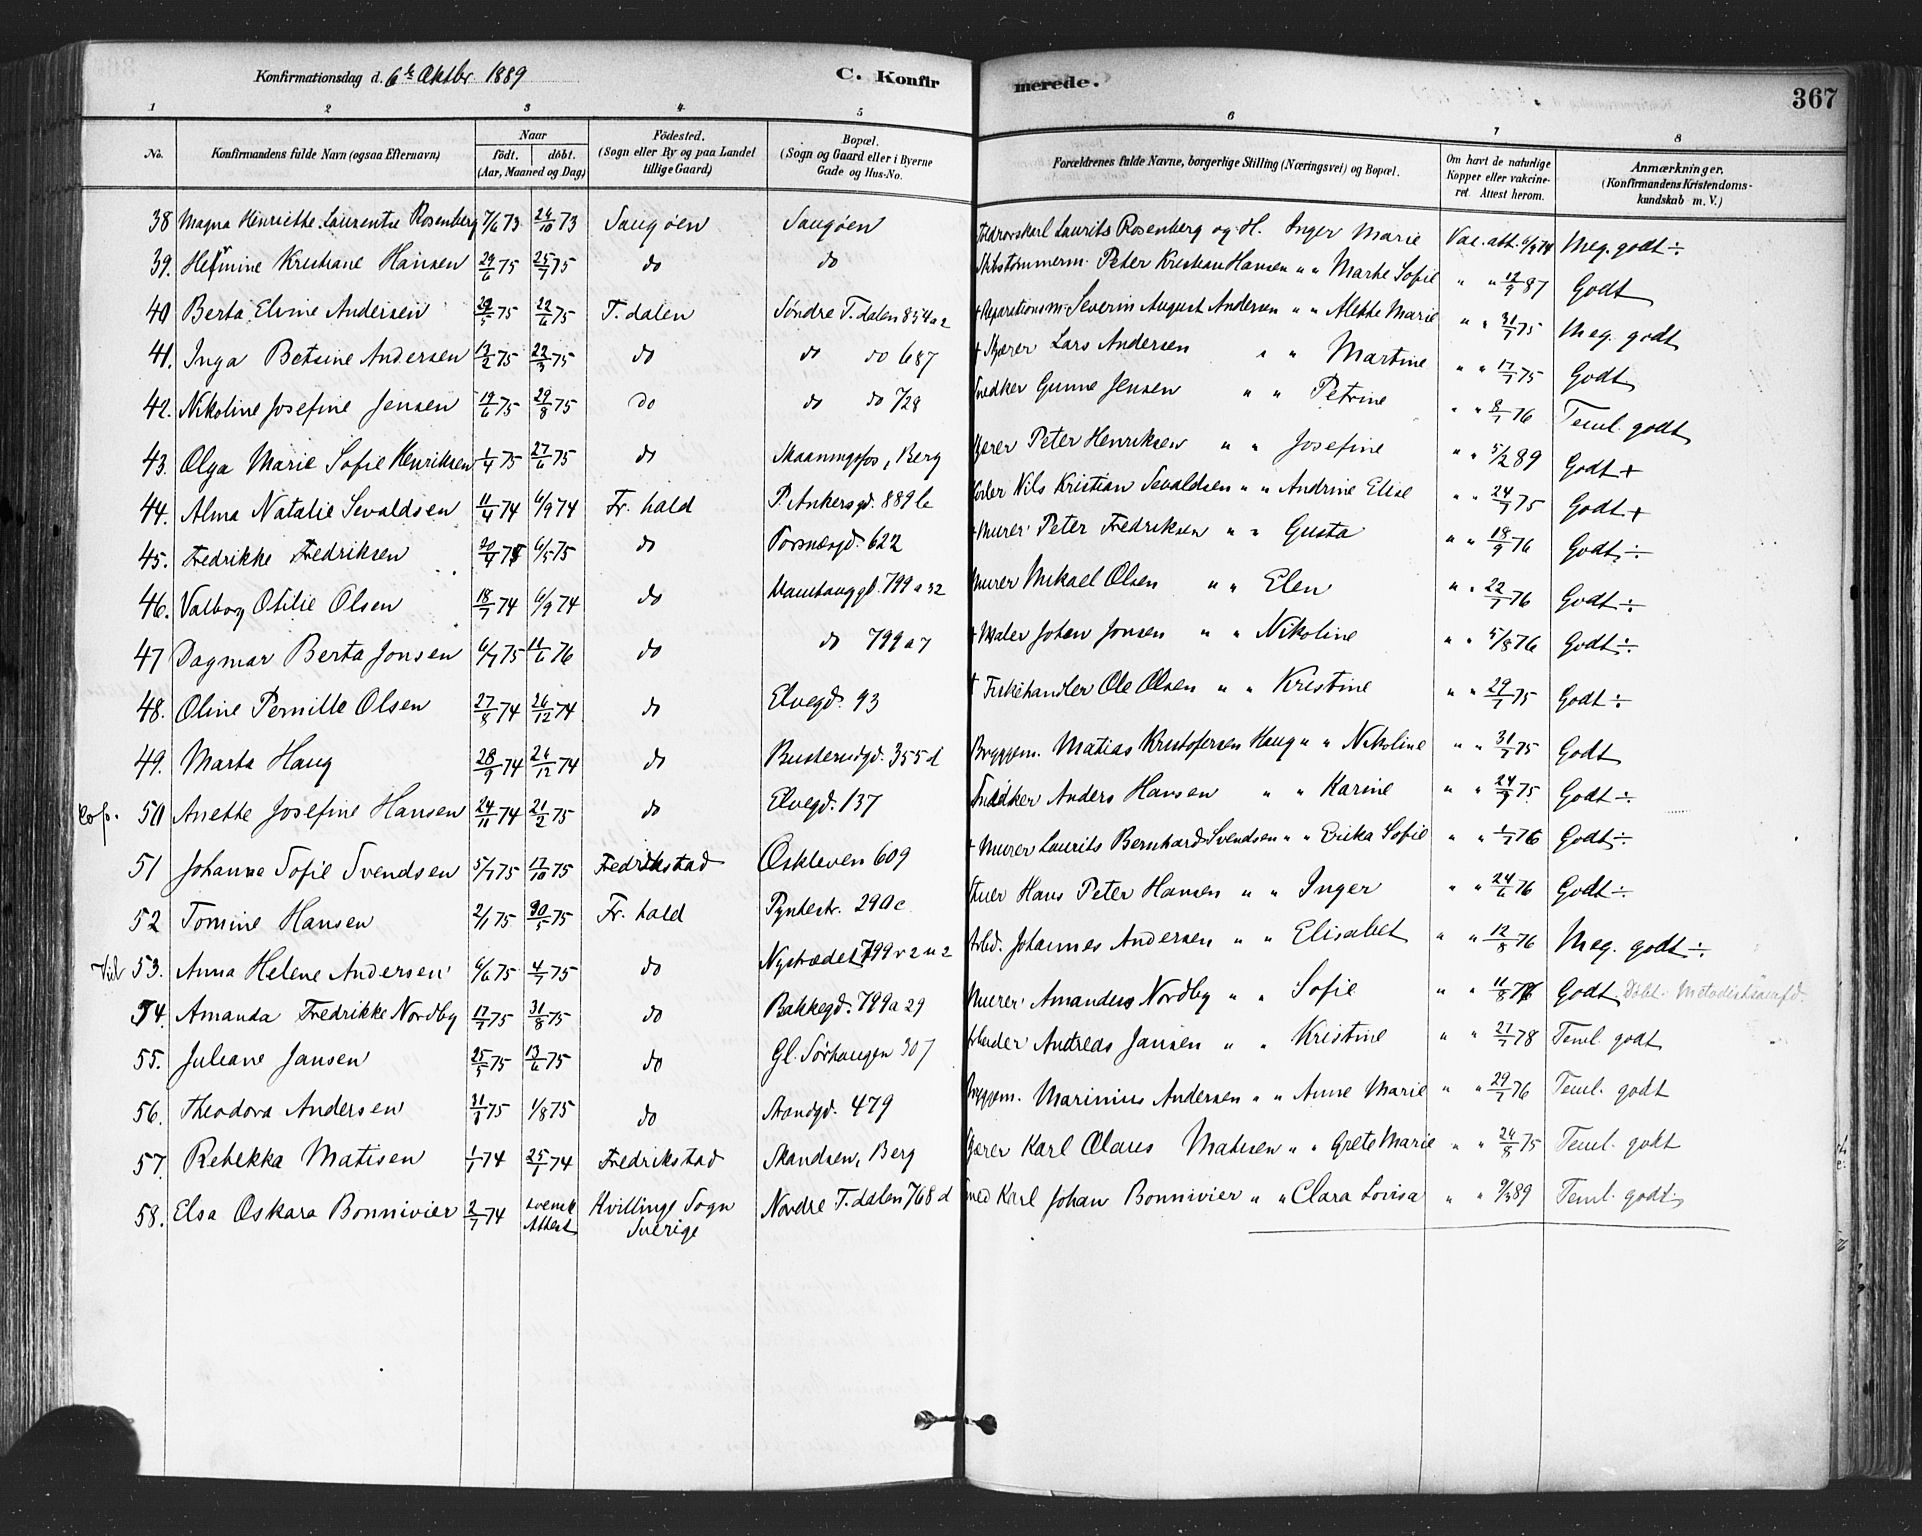 Konfirmationsdag d. 6te Oktbr 1889
C. Konfirmerede.
367
1 2 3 4 5 6 7 8
No.
Konfirmandens fulde Navn (ogsaa Efternavn)
Naar födt. döbt. (Aar, Maaned og Dag)
Födested. (Sogn eller By og paa Landet tillige Gaard)
Bopæl. (Sogn og Gaard eller i Byerne Gade og Hus-No.
Forældrenes fulde Navne, borgerlige Stilling (Næringsvei) og Bopæl.
Om havt de naturlige Kopper eller vakcineret. Attest herom.
Anmærkninger. (Konfirmandens Kristendomskundskab m. V.)
38 Magna Henriette Laurentse Rosenberg 7/6 73 26/10 73 Saugöen Saugöen Laurits Rosenberg og H. Inger Marie Vac. att. Meg. godt ÷
39. Hermine Kristiane Hansen 29/6 75 25/7 75 do do Peter Kristian Hansen " " Marte Sofie " " 12/9 87 Godt
40 Berta Elvine Andersen 75 22/6 75 T. dalen Söndre T. dalen 854 a 2 + Reparationsm. Severin August Andersen " " Alette Marie " " 31/7 75 Meg. godt
41. Inga Betsine Andersen 12/2 75 75 do do do 687 + Skjærer Lars Andersen " " Martine " " 17/7 75 Godt
42. Nikoline Josefine Jensen 19/6 75 29/8 75 do do do 728 Snedker Gunne Jensen " " Petrine " " 8/7 76 Teml. godt
43. Olga Marie Sofie Henriksen 1/4 75 27/6 75 do Skaaningsfos, Berg Peter Henriksen " " Josefine " " 5/2 89 Godt +
44. Alma Natalie Sevaldsen 11/4 74 6/9 74 Fr. hald P. Ankersgd. 889 b Nils Kristian Sevaldsen " " Andrine Elise " " 24/7 75 Godt +
45. Fredrikke Fredriksen 6/5 75 do Porsnæsgd. 622 + Murer Peter Fredriksen " " Gusta " " 18/9 76 Godt ÷
46. Valborg Otilie Olsen 18/7 74 6/9 74 do 799 a 32 Murer Mikael Olsen " " Elen " " 22/7 76 Godt ÷
47 Dagmar Berta Jonsen 6/7 75 11/6 76 do do 799 a 7 + Maler Johan Jonsen " " Nikoline " " 5/8 76 Godt ÷
48. Oline Pernille Olsen 27/8 74 26/12 74 do Elvegd. 93 + Fiskehandler Ole Olsen " " Kristine " " 29/7 75 Godt ÷
49. Marta Haug 28/9 74 26/12 74 do Busterudgd. 355 d Bryggem. Matias Kristofersen Haug " " Nikoline " " 31/7 75 Godt
Cop. 50 Anette Josefine Hansen 24/11 74 21/2 75 do Elvegd. 137 Snedker Anders Hansen " " Karine " " 24/7 75 Godt ÷
51 Johanne Sofie Svendsen 5/7 75 17/10 75 Fredrikstad Oskleven 609 + Murer Laurits Bernhard Svendsen " " Erika Sofie " " 1/7 76 Godt ÷
52 Tomine Hansen 2/1 75 30/5 75 Fr. hald Pyntestr. 290 c Stuer Hans Peter Hansen " " Inger " " 24/6 76 Godt ÷
Vid 53. Anna Helene Andersen 6/6 75 4/7 75 do Nystrædet 799 Arbd. Johannes Andersen " " Elisabet " " 12/8 76 Meg. godt ÷
54. Amanda Fredrikke Nordby 17/7 75 31/8 75 do Bakkegd. 799 a 29 Murer Amandus Nordby " " Sofie " " 11/8 76 Godt Döbt. Metodistsamfd.
55. Juliane Jansen 25/5 75 13/6 75 do Gl. Sörhaugen 307 Arbeider Andreas Jansen " " Kristine " " 21/7 78 Teml. godt
56. Theodora Andersen 75 1/8 75 do Strandgd. 479 Bryggem. Marinius Andersen " " Anne Marie " " 29/7 76 Teml. godt
57. Rebekka Matisen 1/1 74 25/1 74 Fredrikstad Skandsen, Berg Karl Olaus Matisen " " Grete Marie " " 24/8 75 Teml. godt
58. Elsa Oskara Bonnivier 2/7 74 svensk Attest Hvillinge Sogn Sverige Nordre T. dalen 768 d Smed Karl Johan Bonnivier " " Clara Lovisa " " 9/3 89 Teml. godt